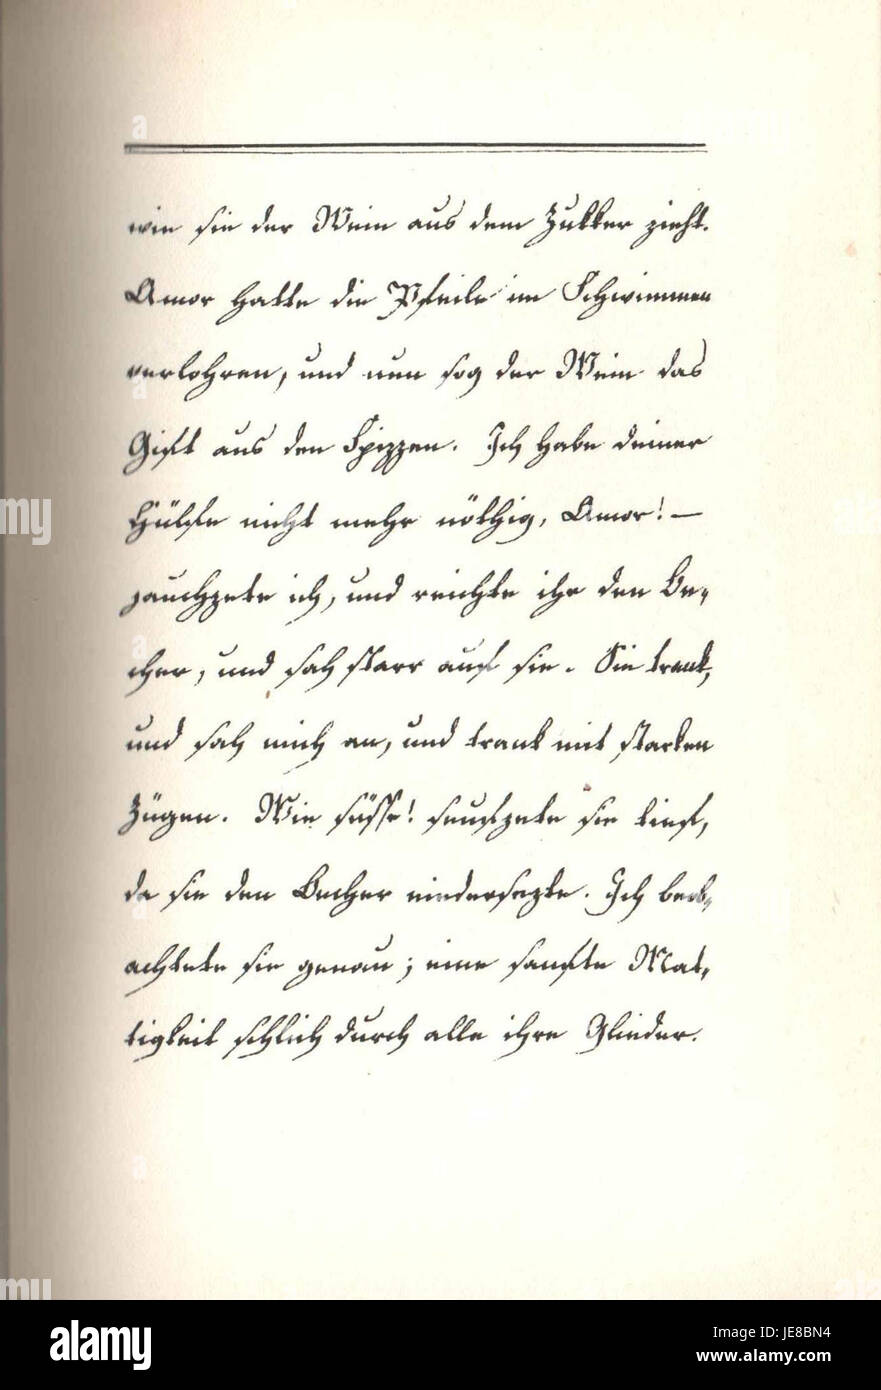 wie sie der Wein aus dem Zukker zieht.
Amor hatte die Pfeile im Schwimmen
verlohren, und nun sog der Wein das
Gift aus den Spizzen. Ich habe deiner
Hülfe nicht mehr nöthig, Amor! —
jauchzete ich, und reichte ihr den Be-
cher, und sah starr auf sie. Sie trank,
und sah mich an, und trank mit starken
Zügen. Wie süsse! seufzete sie tief,
da sie den Becher niedersezte. Ich beob-
achtete sie genau; eine sanfte Mat-
tigkeit schlich durch alle ihre Glieder.
my
my
a
a
a
alamy
Image ID: JE8BN4
www.alamy.com